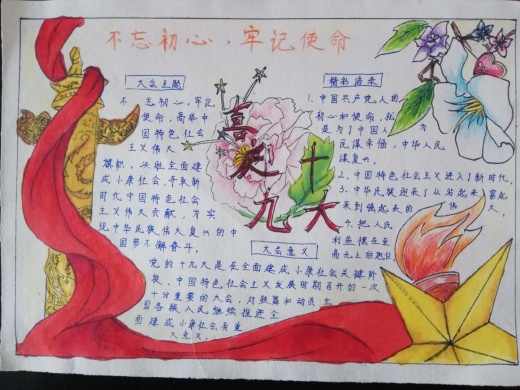 不忘初心，牢记使命
大会主题
不忘初心，牢记
使命，高举中
国特色社会
主义伟大
旗帜，决胜全面建
成小康社会，夺取新
时代中国特色社会
主义伟大贡献，为实
现中华民族伟大复兴的中
国梦不懈奋斗。
喜迎十
九大
精彩语录
1.中国共产党人的
初心和使命，就
是为了中国人 为
民谋幸福，中华人民
谋复兴。
2.中国特色社会主义进入了新时代。
3.中华民族迎来了从站起来、富起
来到强起来的 伟大
4.把人民
利益摆在至
高无上的地位
大会意义
党的十九大是在全面建成小康社会关键阶
段、中国特色社会主义发展时期召开的一次
十分重要的大会，对鼓舞和动员全
国各族人民继续推进全
面建成小康社会有重
大意义。